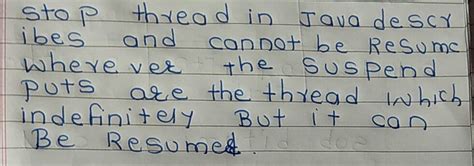 stop thread in Java descr
ibes and cannot be Resume
where ver the suspend
puts are the thread which
indefinitely But it can
Be Resumed.